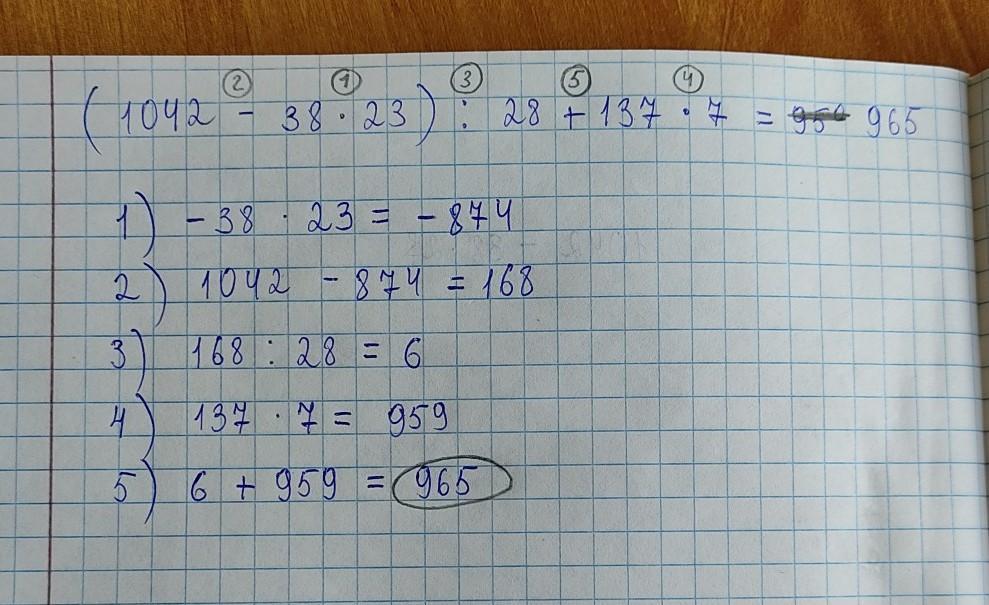 ② ① ③ ⑤ ④
(1042 - 38 · 23) : 28 + 137 · 7 = 965
1) - 38 · 23 = - 874
2) 1042 - 874 = 168
3) 168 : 28 = 6
4) 137 · 7 = 959
5) 6 + 959 = 965